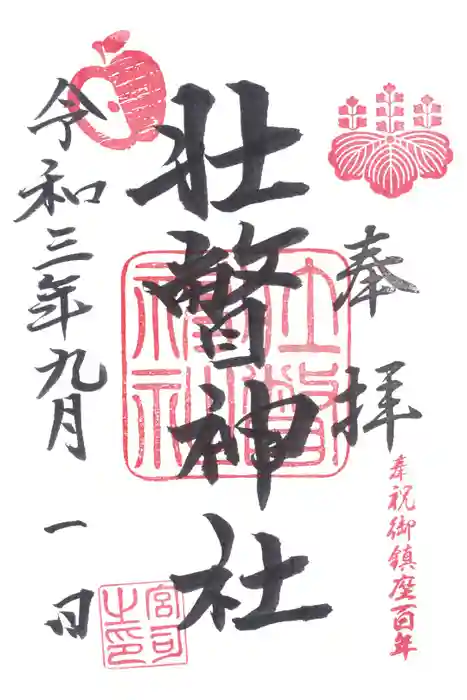 奉拝
奉祝御鎮座百年
壮瞥神社
令和三年九月一日
壮瞥神社
宮司之印